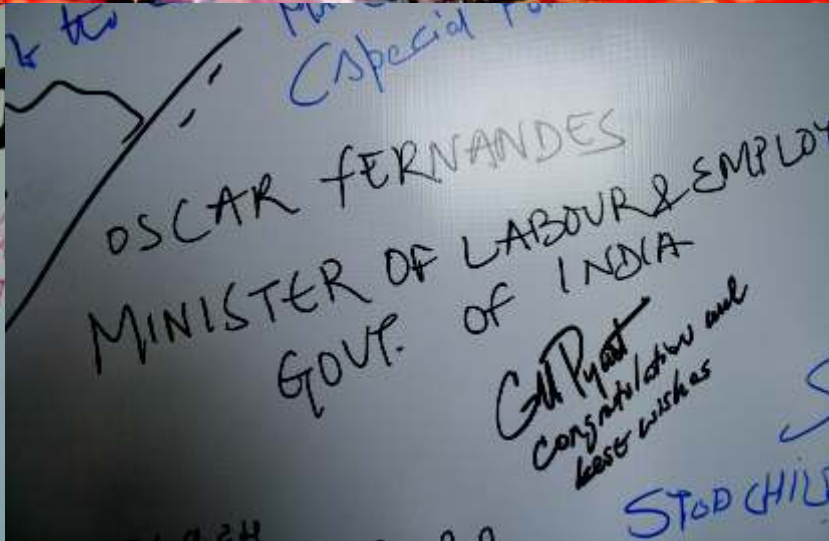 (Special
OSCAR FERNANDES
MINISTER OF LABOUR & EMPLOY
GOVT. OF INDIA
Congratulation and
best wishes
STOP CHIL